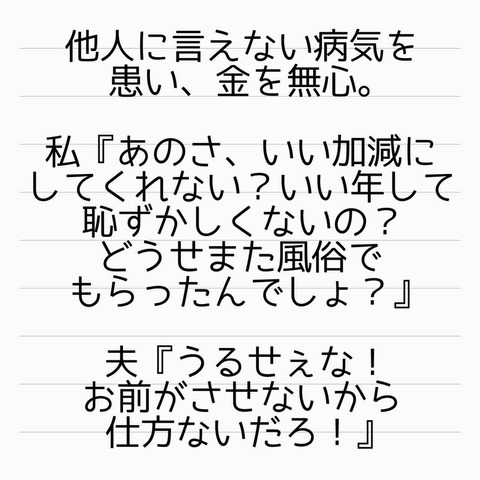 他人に言えない病気を
患い、金を無心。
私『あのさ、いい加減に
してくれない？いい年して
恥ずかしくないの？
どうせまた風俗で
もらったんでしょ？』
夫『うるせぇな！
お前がさせないから
仕方ないだろ！』